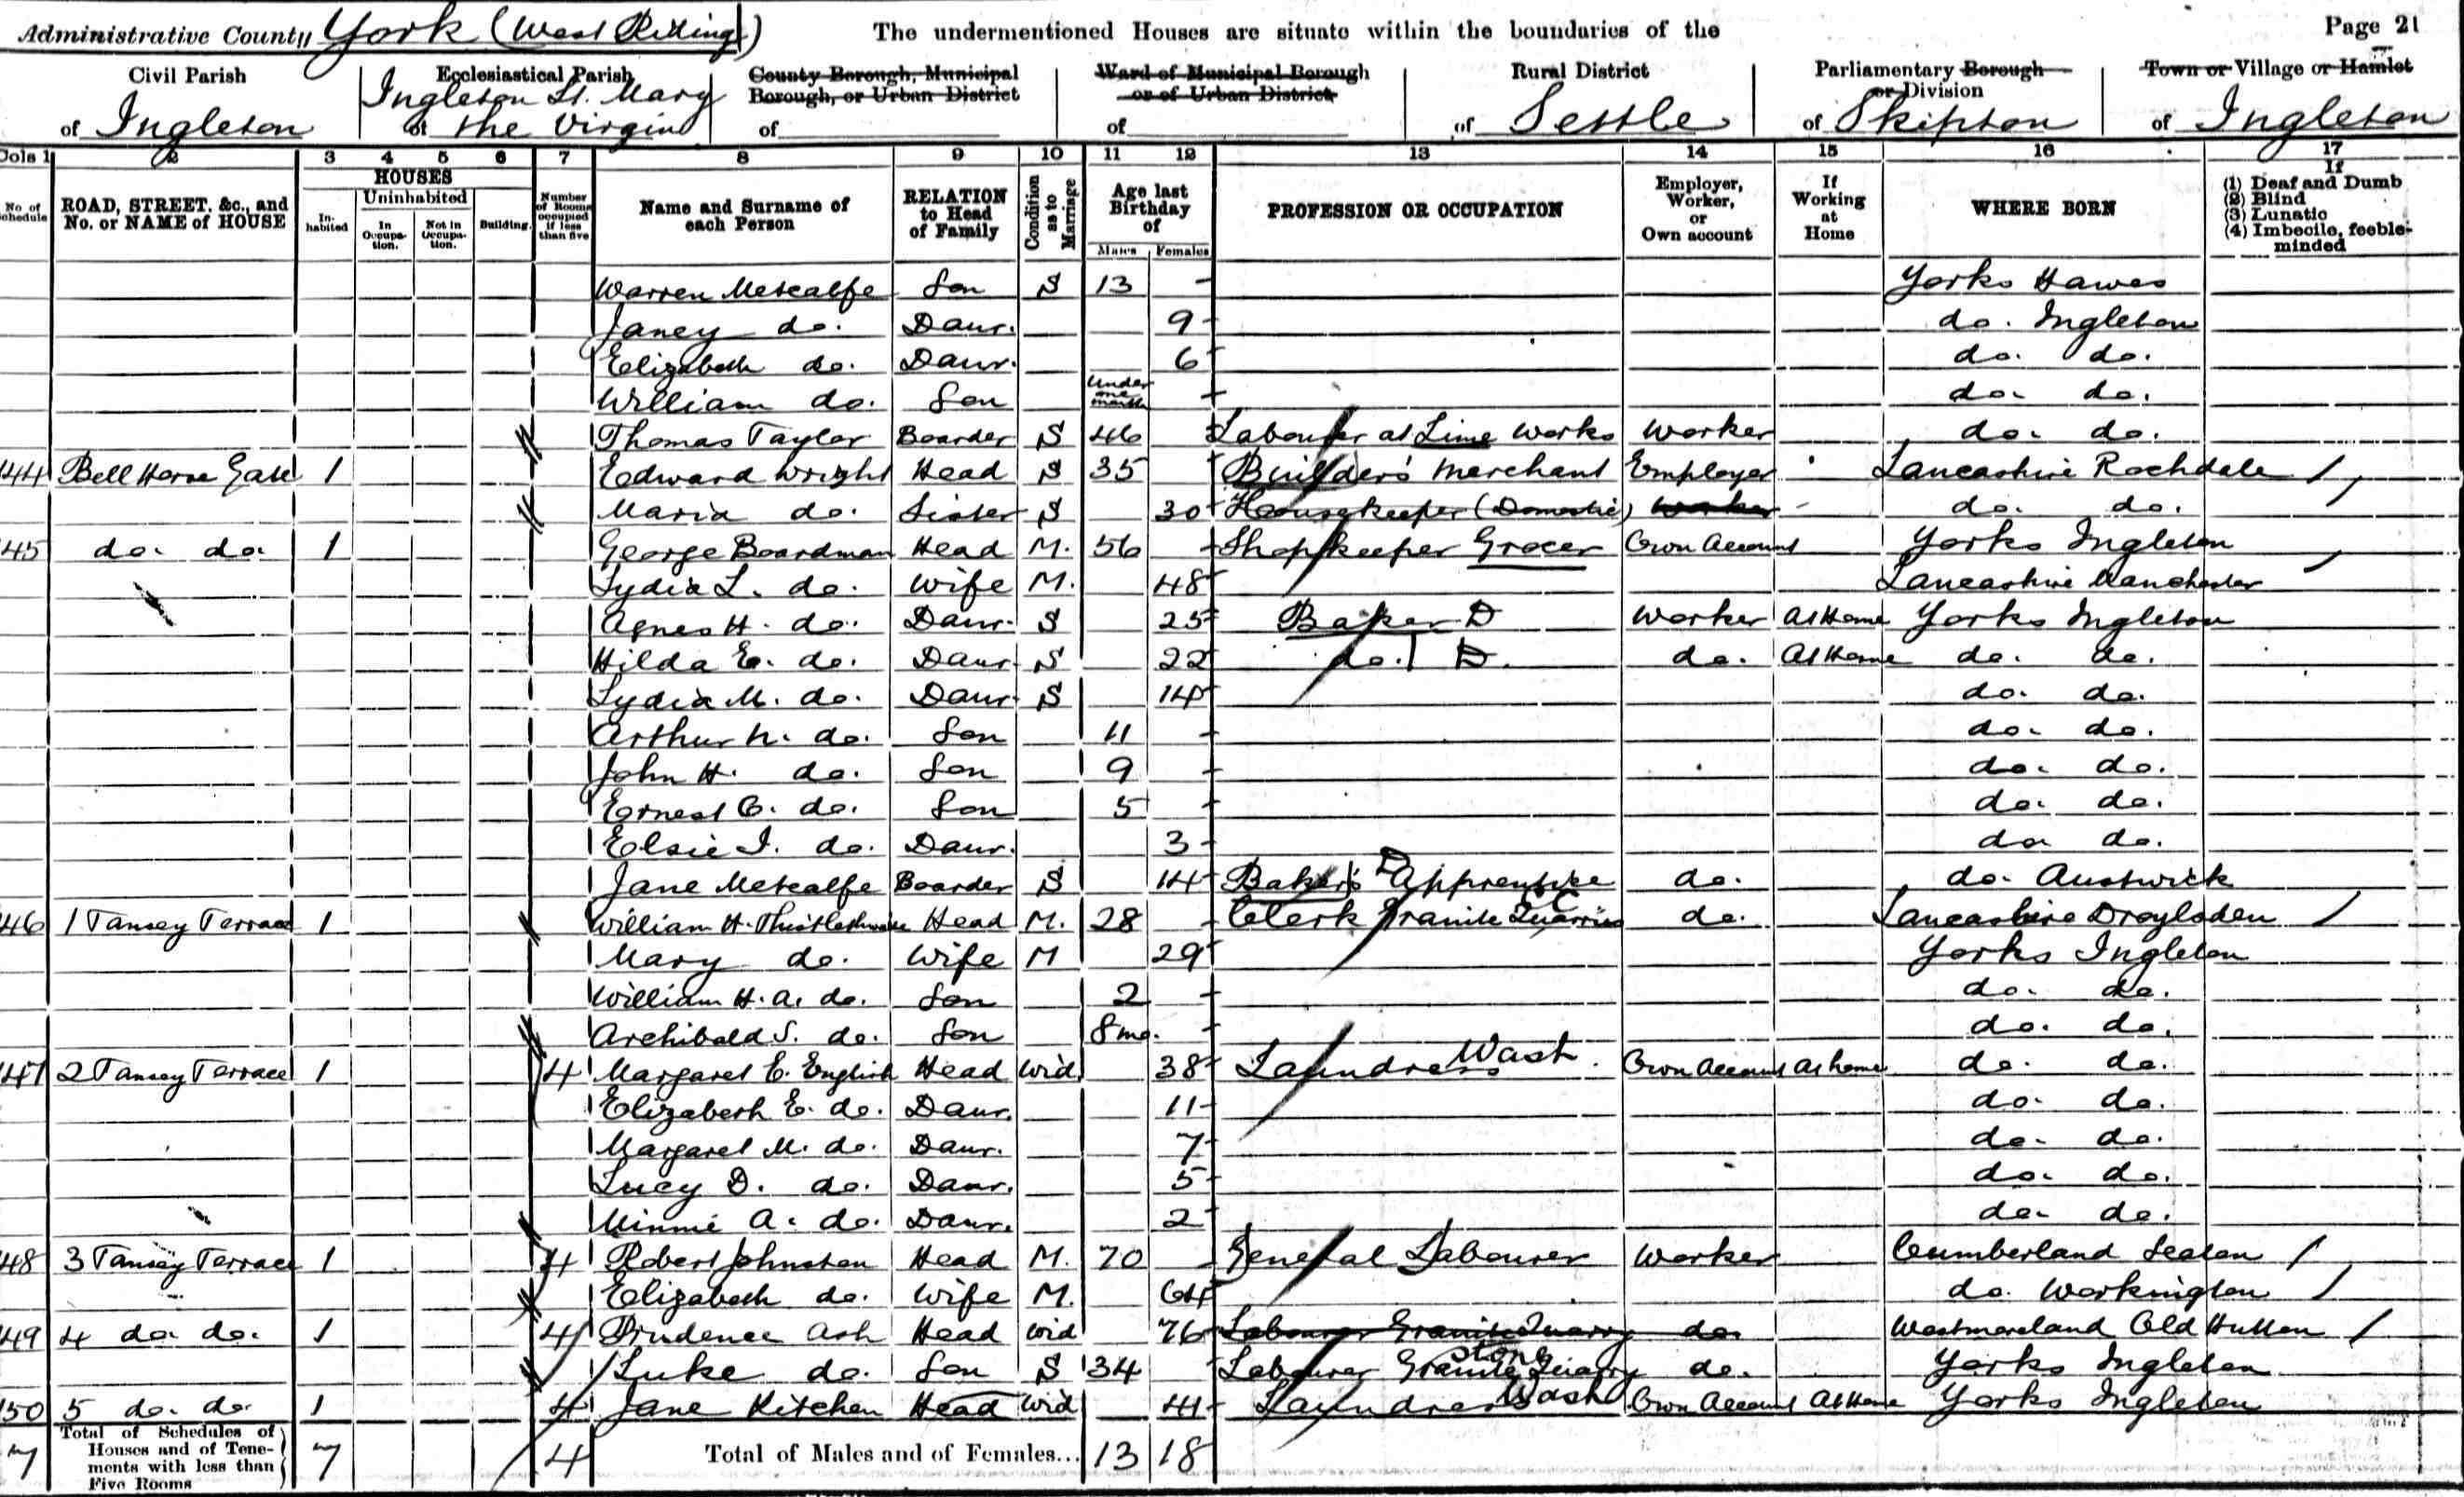 Administrative County York (West Riding) The undermentioned Houses are situate within the boundaries of the Page 21
Civil Parish Ecclesiastical Parish County Borough, Municipal Borough, or Urban District Ward of Municipal Borough or of Urban District Rural District Parliamentary Borough or Division Town or Village or Hamlet
of Ingleton of Ingleton St. Mary the Virgin of of of Settle of Skipton of Ingleton
Cols 1 2 3 4 5 6 7 8 9 10 11 12 13 14 15 16 17
No. of Schedule ROAD, STREET, &c., and No. or NAME of HOUSE HOUSES Inhabited Uninhabited In Occupation. Not in Occupation. Building. Number of Rooms occupied if less than five Name and Surname of each Person RELATION to Head of Family Condition as to Marriage Age last Birthday of Males Females PROFESSION OR OCCUPATION Employer, Worker, or Own account If Working at Home WHERE BORN If (1) Deaf and Dumb (2) Blind (3) Lunatic (4) Imbecile, feeble-minded
Warren Metcalfe Son S 13 - Yorks Hawes
Janey do. Daur. 9 do. Ingleton
Elizabeth do. Daur. 6 do. do.
William do. Son under one month do. do.
Thomas Taylor Boarder S 46 Labourer at Lime Works Worker do. do.
144 Bell Horse Gate 1 Edward Wright Head S 35 Builders' Merchant Employer Lancashire Rochdale
Maria do. Sister S 30 Housekeeper (Domestic) Worker do. do.
45 do. do. 1 George Boardman Head M. 56 Shopkeeper Grocer Own Account Yorks Ingleton
Lydia L. do. Wife M. 48 Lancashire Manchester
Agnes H. do. Daur. S 25 Baker D Worker At Home Yorks Ingleton
Hilda E. do. Daur. S 22 do. D. do. At Home do. do.
Lydia M. do. Daur. S 14 do. do.
Arthur do. Son 11 do. do.
John H. do. Son 9 do. do.
Ernest C. do. Son 5 do. do.
Elsie I. do. Daur. 3 do. do.
Jane Metcalfe Boarder S 14 Baker's D Apprentice do. do. Austwick
46 1 Tansey Terrace 1 William H. Thistlethwaite Head M. 28 Clerk Granite Quarries do. Lancashire Droylsden
Mary do. Wife M 29 Yorks Ingleton
William H. A. do. Son 2 do. do.
Archibald S. do. Son 8 mo. do. do.
147 2 Tansey Terrace 1 4 Margaret E. English Head Wid 38 Laundress Wash. Own Account At home do. do.
Elizabeth E. do. Daur. 11 do. do.
Margaret M. do. Daur. 7 do. do.
Lucy D. do. Daur. 5 do. do.
Minnie A. do. Daur. 2 do. do.
48 3 Tansey Terrace 1 4 Robert Johnston Head M. 70 General Labourer Worker Cumberland Seaton
Elizabeth do. Wife M. 64 do. Workington
49 4 do. do. 1 4 Prudence Ash Head Wid 76 Labourer Granite Quarry do. Westmoreland Old Hutton
Luke do. Son S 34 Labourer Granite Stone Quarry do. Yorks Ingleton
150 5 do. do. 1 4 Jane Kitchen Head Wid 41 Laundress Wash Own Account At Home Yorks Ingleton
7 Total of Schedules of Houses and of Tenements with less than Five Rooms 7 4 Total of Males and of Females... 13 18